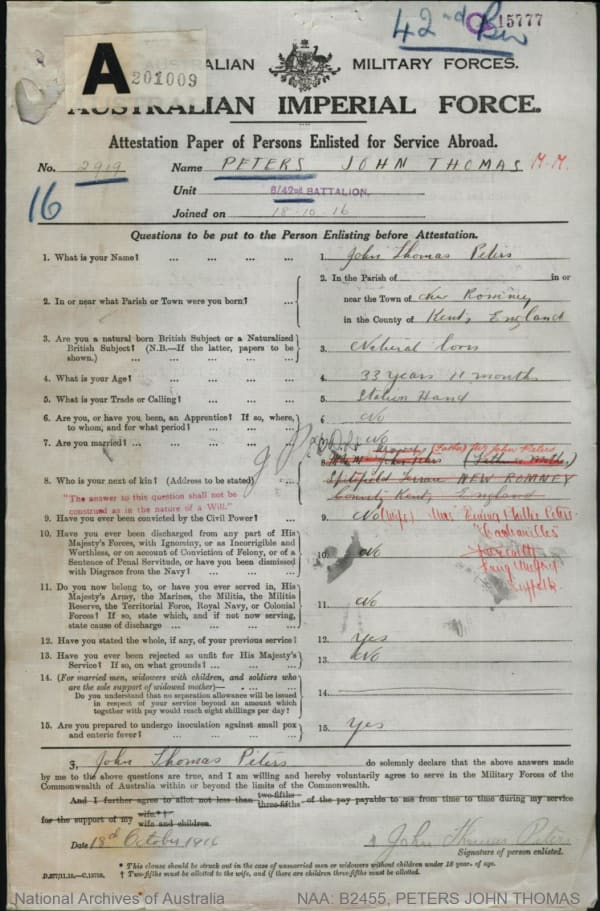 42nd Bn
15777
A
201009
AUSTRALIAN MILITARY FORCES.
AUSTRALIAN IMPERIAL FORCE.
Attestation Paper of Persons Enlisted for Service Abroad.
No. 2919 Name PETERS JOHN THOMAS M.M.
Unit 6/42nd BATTALION.
16
Joined on 18-10-16
Questions to be put to the Person Enlisting before Attestation.
1. What is your Name? ... ... ... ... 1. John Thomas Peters
2. In or near what Parish or Town were you born? ... 2. In the Parish of in or
near the Town of New Romney
in the County of Kent, England
3. Are you a natural born British Subject or a Naturalized
British Subject? (N.B.—If the latter, papers to be
shown.) ... ... ... ... ... 3. Natural born
4. What is your Age? ... ... ... ... 4. 33 years 11 months
5. What is your Trade or Calling? ... ... ... 5. Station Hand
6. Are you, or have you been, an Apprentice? If so, where,
to whom, and for what period? ... ... ... 6. No
7. Are you married? ... ... ... ... 7. No
8. Who is your next of kin? (Address to be stated) ... 8. (Father) Mr John Peters
Terrace NEW ROMNEY
County Kent, England
"The answer to this question shall not be
construed as in the nature of a Will."
(Wife) Mrs Peters
Suffolk
9. Have you ever been convicted by the Civil Power? ... 9. No
10. Have you ever been discharged from any part of His
Majesty's Forces, with Ignominy, or as Incorrigible and
Worthless, or on account of Conviction of Felony, or of a
Sentence of Penal Servitude, or have you been dismissed
with Disgrace from the Navy? ... ... ... 10. No
11. Do you now belong to, or have you ever served in, His
Majesty's Army, the Marines, the Militia, the Militia
Reserve, the Territorial Force, Royal Navy, or Colonial
Forces? If so, state which, and if not now serving,
state cause of discharge ... ... ... 11. No
12. Have you stated the whole, if any, of your previous service? 12. Yes
13. Have you ever been rejected as unfit for His Majesty's
Service? If so, on what grounds? ... ... ... 13. No
14. (For married men, widowers with children, and soldiers who
are the sole support of widowed mother)— ...
Do you understand that no separation allowance will be issued
in respect of your service beyond an amount which
together with pay would reach eight shillings per day? 14.
15. Are you prepared to undergo inoculation against small pox
and enteric fever? ... ... ... ... 15. Yes
I, John Thomas Peters do solemnly declare that the above answers made
by me to the above questions are true, and I am willing and hereby voluntarily agree to serve in the Military Forces of the
Commonwealth of Australia within or beyond the limits of the Commonwealth.
And I further agree to allot not less than two-fifths three-fifths of the pay payable to me from time to time during my service
for the support of my wife.*† wife and children.
Date 18th October 1916 John Thomas Peters
Signature of person enlisted.
* This clause should be struck out in the case of unmarried men or widowers without children under 18 year. of age.
D.277/11.15.—C.15713. † Two-fifths must be allotted to the wife, and if there are children three-fifths must be allotted.
National Archives of Australia NAA: B2455, PETERS JOHN THOMAS